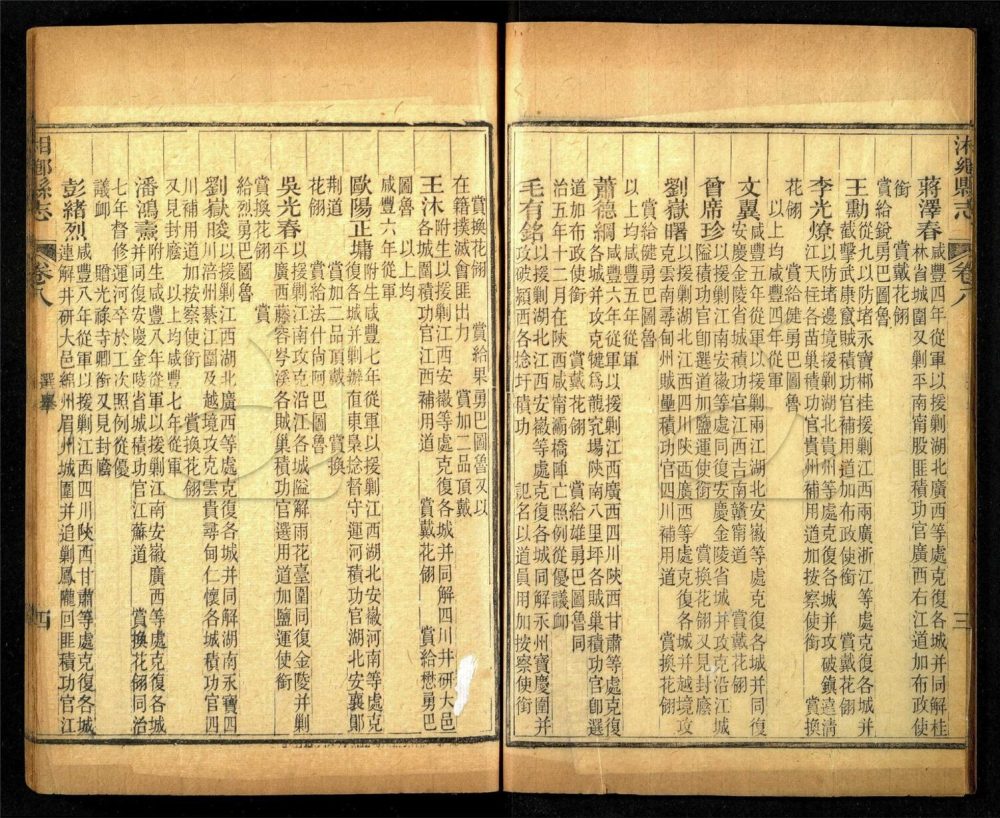 湘鄉縣志
卷八
三
蔣澤春 咸豐四年從軍以援剿湖北廣西等處克復各城并同解桂
林省城圍又剿平南南股匪積功官廣西右江道加布政使
銜 賞戴花翎
賞給銳勇巴圖魯
王勳 從九以防堵永寶郴桂援剿江西兩廣浙江等處克復各城并
截擊武康竄賊積功官補用道加布政使銜 賞戴花翎
李光燎 以防堵邊境援剿湖北貴州等處克復各城并攻破鎮遠清
江天柱各苗巢積功官貴州補用道加按察使銜 賞換
花翎 賞給健勇巴圖魯
以上均咸豐四年從軍
文翼 咸豐五年從軍以援剿兩江湖北安徽等處克復各城并同復
安慶金陵省城積功官江西吉南贛甯道 賞戴花翎
曾席珍 以援剿江南安徽等處同復安慶金陵省城并攻克沿江城
隘積功官卽選道加鹽運使銜 賞換花翎又見封廕
劉嶽曙 以援剿湖北江西四川陝西廣西等處克復各城并越境攻
克雲南尋甸州賊壘積功官四川補用道 賞換花翎
賞給健勇巴圖魯
以上均咸豐五年從軍
蕭德綱 咸豐六年從軍以援剿江西廣西四川陝西甘肅等處克復
各城并攻克犍爲龍究場陝南八里坪各賊巢積功官卽選
道加布政使銜 賞戴花翎 賞給雄勇巴圖魯同
治五年十二月在陝西咸甯灞橋陣亡照例從優議卹
毛有銘 以援剿湖北江西安徽等處克復各城同解永州寶慶圍并
攻破潁西各捻圩積功 記名以道員用加按察使銜
賞換花翎 賞給果勇巴圖魯又以
在籍撲滅會匪出力 賞加二品頂戴
王沐 附生以援剿江西安徽等處克復各城并同解四川井研大邑
各城圍積功官江西補用道 賞戴花翎 賞給懋勇巴
圖魯 以上均
咸豐六年從軍
歐陽正墉 附生咸豐七年從軍以援剿江西湖北安徽河南等處克
復各城并剿辦直東梟捻督守運河積功官湖北安襄鄖
荆道 賞加二品頂戴 賞換
花翎 賞給法什尚阿巴圖魯
吳光春 以援剿江南攻克沿江各城隘解雨花臺圍同復金陵并剿
平廣西藤容岑溪各賊巢積功官選用道加鹽運使銜
賞換花翎 賞
給烈勇巴圖魯
劉嶽㚇 以援剿江西湖北廣西等處克復各城并同解湖南永寶四
川涪州綦江圍及越境攻克雲貴尋甸仁懷各城積功官四
川補用道加按察使銜 賞換花翎
又見封廕 以上均咸豐七年從軍
潘鴻燾 附生咸豐八年從軍以援剿江南安徽廣西等處克復各城
并同復安慶金陵省城積功官江蘇道 賞換花翎同治
七年督修運河卒於工次照例從優
議卹 贈光祿寺卿銜又見封廕
彭緒烈 咸豐八年從軍以援剿江西四川陝西甘肅等處克復各城
連解井研大邑綿州眉州城圍并追剿鳳隴回匪積功官江
湘鄉縣志
卷八
選舉
四